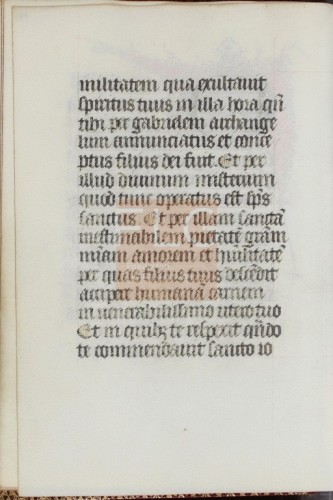 militatem qua exultauit
spiritus tuus in illa hora qñ
tibi per gabrielem archange
lum annunciatus et conce
ptus filius dei fuit. Et per
illud diuinum misterium
quod tunc operatus est sp̃s
sanctus. Et per illam sanctã
inestimabilem pietatẽ gratiam
amorem et humilitatẽ
per quas filius tuus descẽdit
accipere humanã carnem
in uenerabilissimo utero tuo
Et in quibꝫ te respexit qñdo
te commendauit sancto io